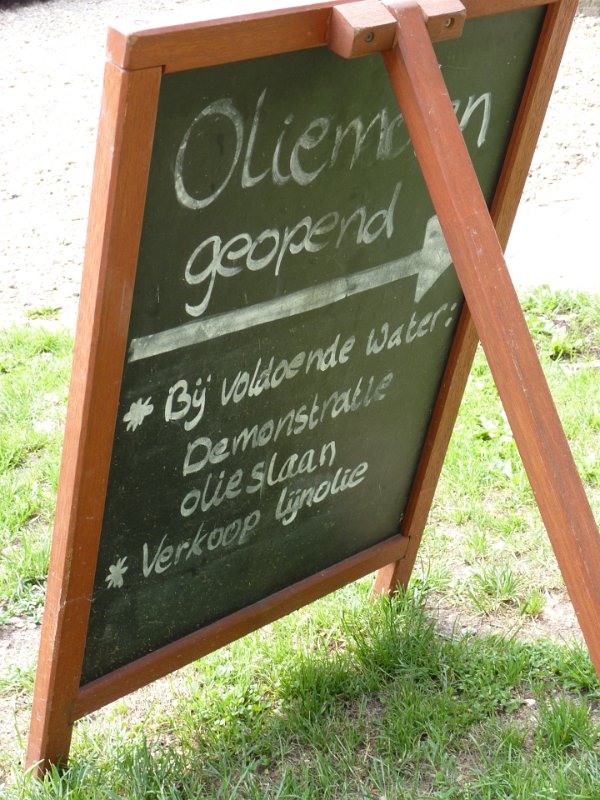 Oliemolen
geopend
* Bij voldoende water:
Demonstratie
olieslaan
* Verkoop lijnolie